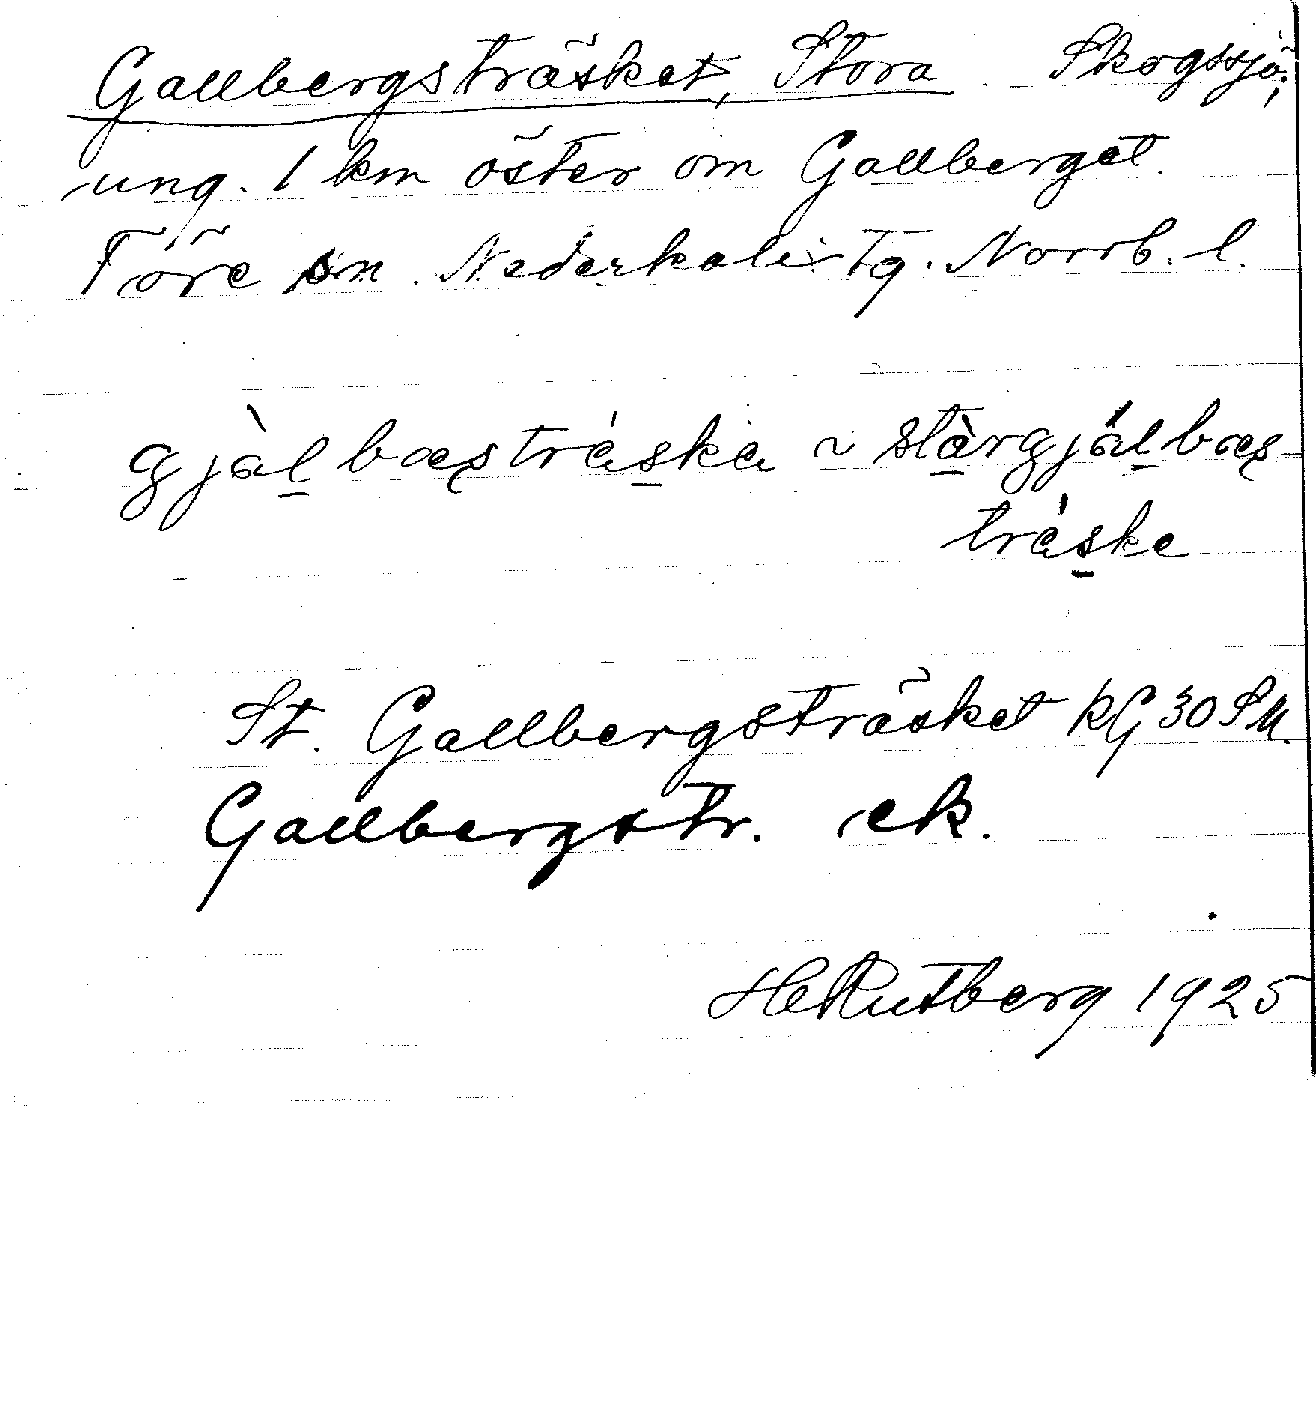 Gallbergsträsket, Stora. Skogssjö;
ung. 1 km öster om Gallberget.
Töre sn. Nederkalix tg. Norrb. l.
gjàlbæsträ́ska ~ stàrgjálbæs
trä́ske
St. Gallbergsträsket RG 30 SM.
Gallbergstr. ek.
H Rutberg 1925